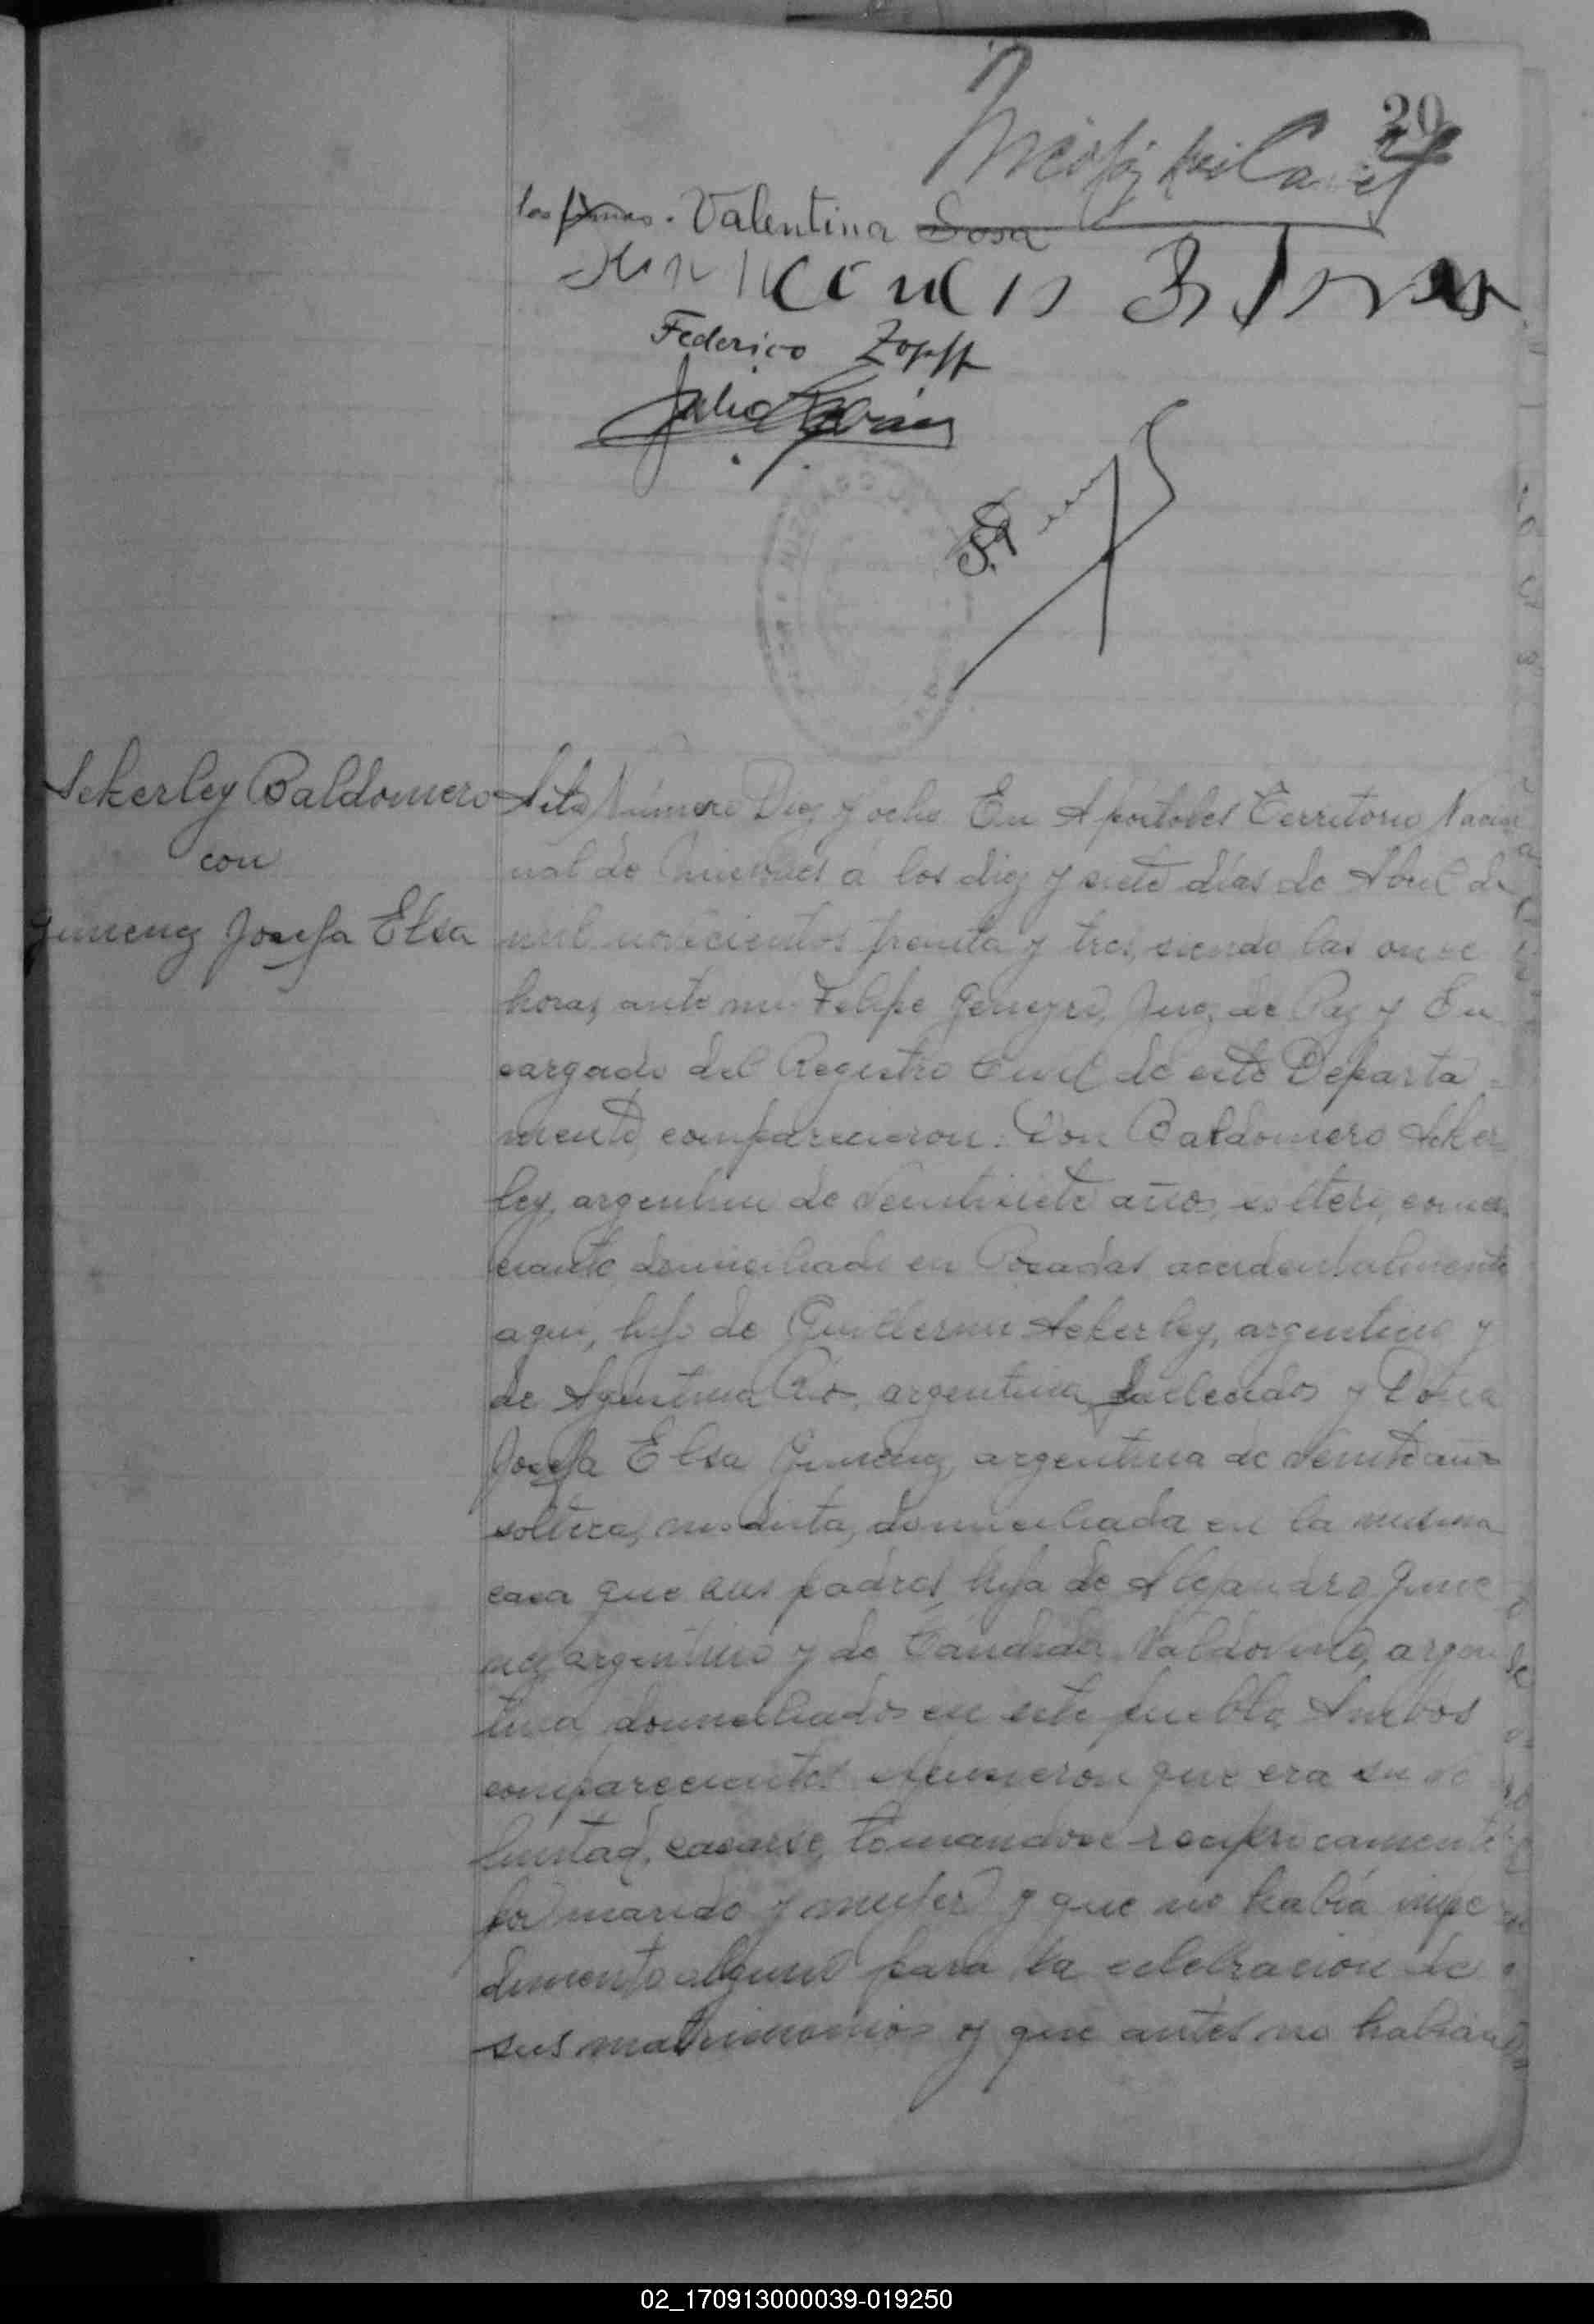 20
las firmas. Valentina Sosa
Federico Zopff
Julio
JUZGADO DE
Akerley Baldomero
con
Jimenez Josefa Elsa
Acta Número Diez y ocho En Apóstoles Territorio Nacio
nal de Misiones á los diez y siete días de Abril de
mil novecientos treinta y tres, siendo las once
horas, ante mi Felipe Juez de Paz y En
cargado del Registro Civil de este Departa
mento, comparecieron: Don Baldomero Aker
ley, argentino de veintisiete años, soltero, comer
ciante, domiciliado en Posadas accidentalmente
aqui, hijo de Guillermo Akerley, argentino y
de Agustina Rios, argentina, fallecidos y Doña
Josefa Elsa Jimenez, argentina de veinte años
soltera, modista, domiciliada en la misma
casa que sus padres, hija de Alejandro Jime
nez, argentino y de Cándida Valdovino, argen
tina, domiciliados en este pueblo, Ambos
comparecientes expusieron que era su vo
luntad, casarse, tomandose reciprocamente
por marido y mujer y que no había impe
dimento alguno para la celebracion de
sus matrimonios y que antes no habian
02_170913000039-019250